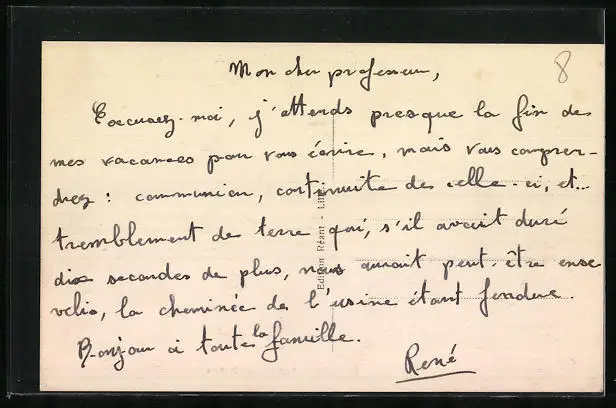 8
Mon cher professeur,
Excusez-moi, j'attends presque la fin de
mes vacances pour vous écrire, mais vous compren-
drez : communion, continuité de celle-ci, et...
tremblement de terre qui, s'il avait duré
dix secondes de plus, nous aurait peut-être ense
velis, la cheminée de l'usine étant fendue.
Bonjour à toute la famille.
René
Edition Réant - Lille